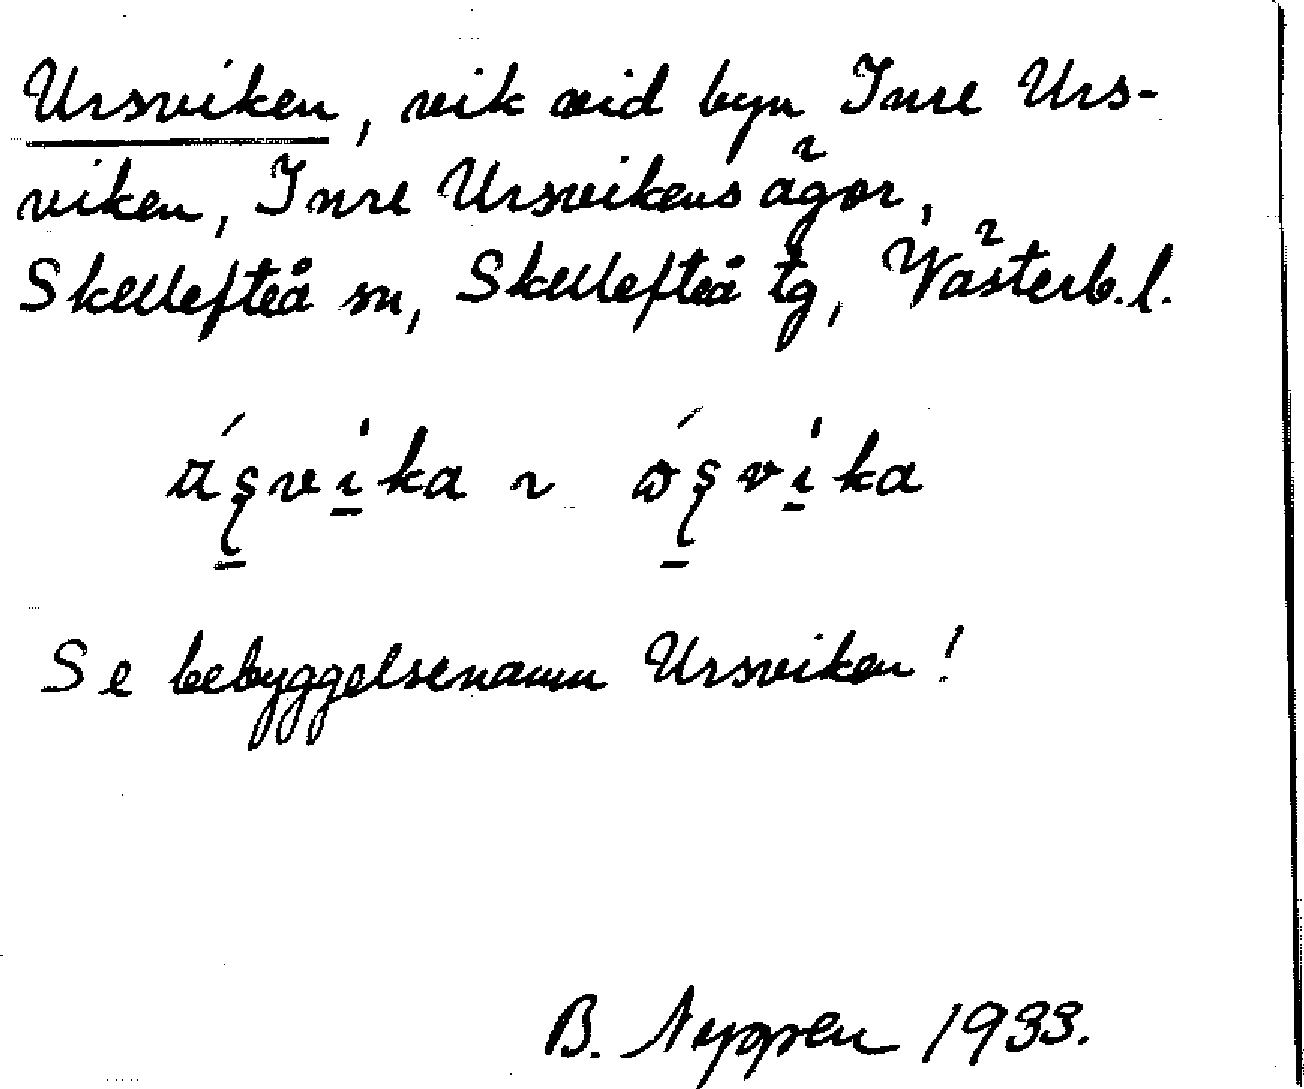 Ursviken, vik vid byn Inre Urs-
viken, Inre Ursvikens ägor,
Skellefteå sn, Skellefteå tg, Västerb. l.
Se bebyggelsenamn Ursviken!
B. Neppen 1933.